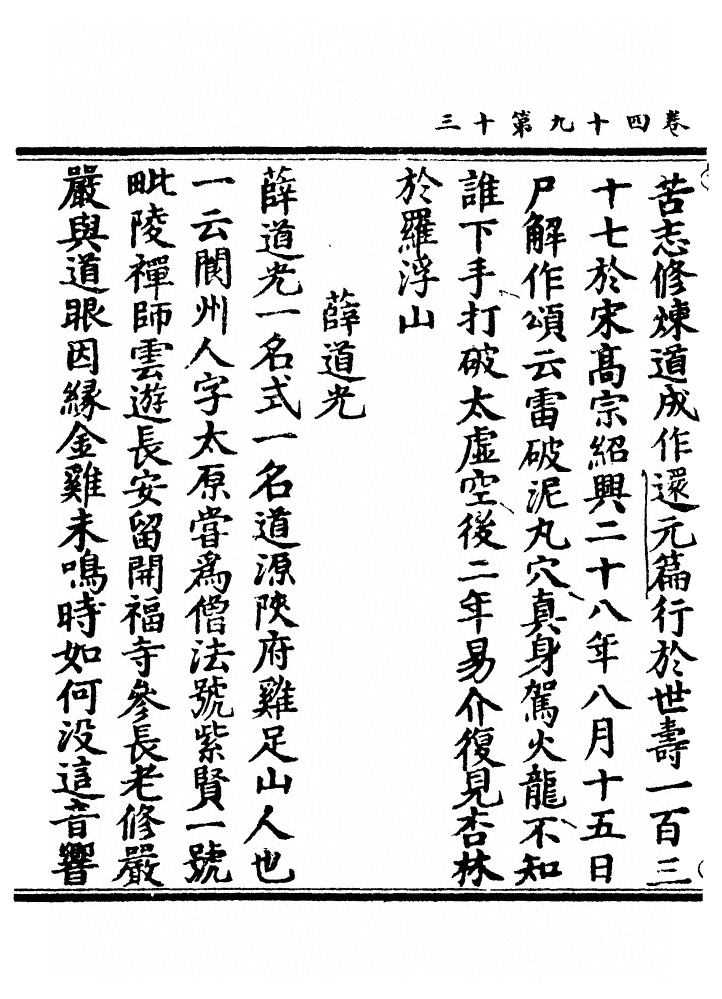 卷四十九第十三
苦志修煉道成作還元篇行於世壽一百三
十七於宋高宗紹興二十八年八月十五日
尸解作頌云雷破泥丸穴真身駕火龍不知
誰下手打破太虛空後二年易介復見杏林
於羅浮山
薛道光
薛道光一名式一名道源陝府雞足山人也
一云閬州人字太原嘗為僧法號紫賢一號
毗陵禪師雲遊長安留開福寺參長老修嚴
嚴與道眼因緣金雞未鳴時如何没這音響